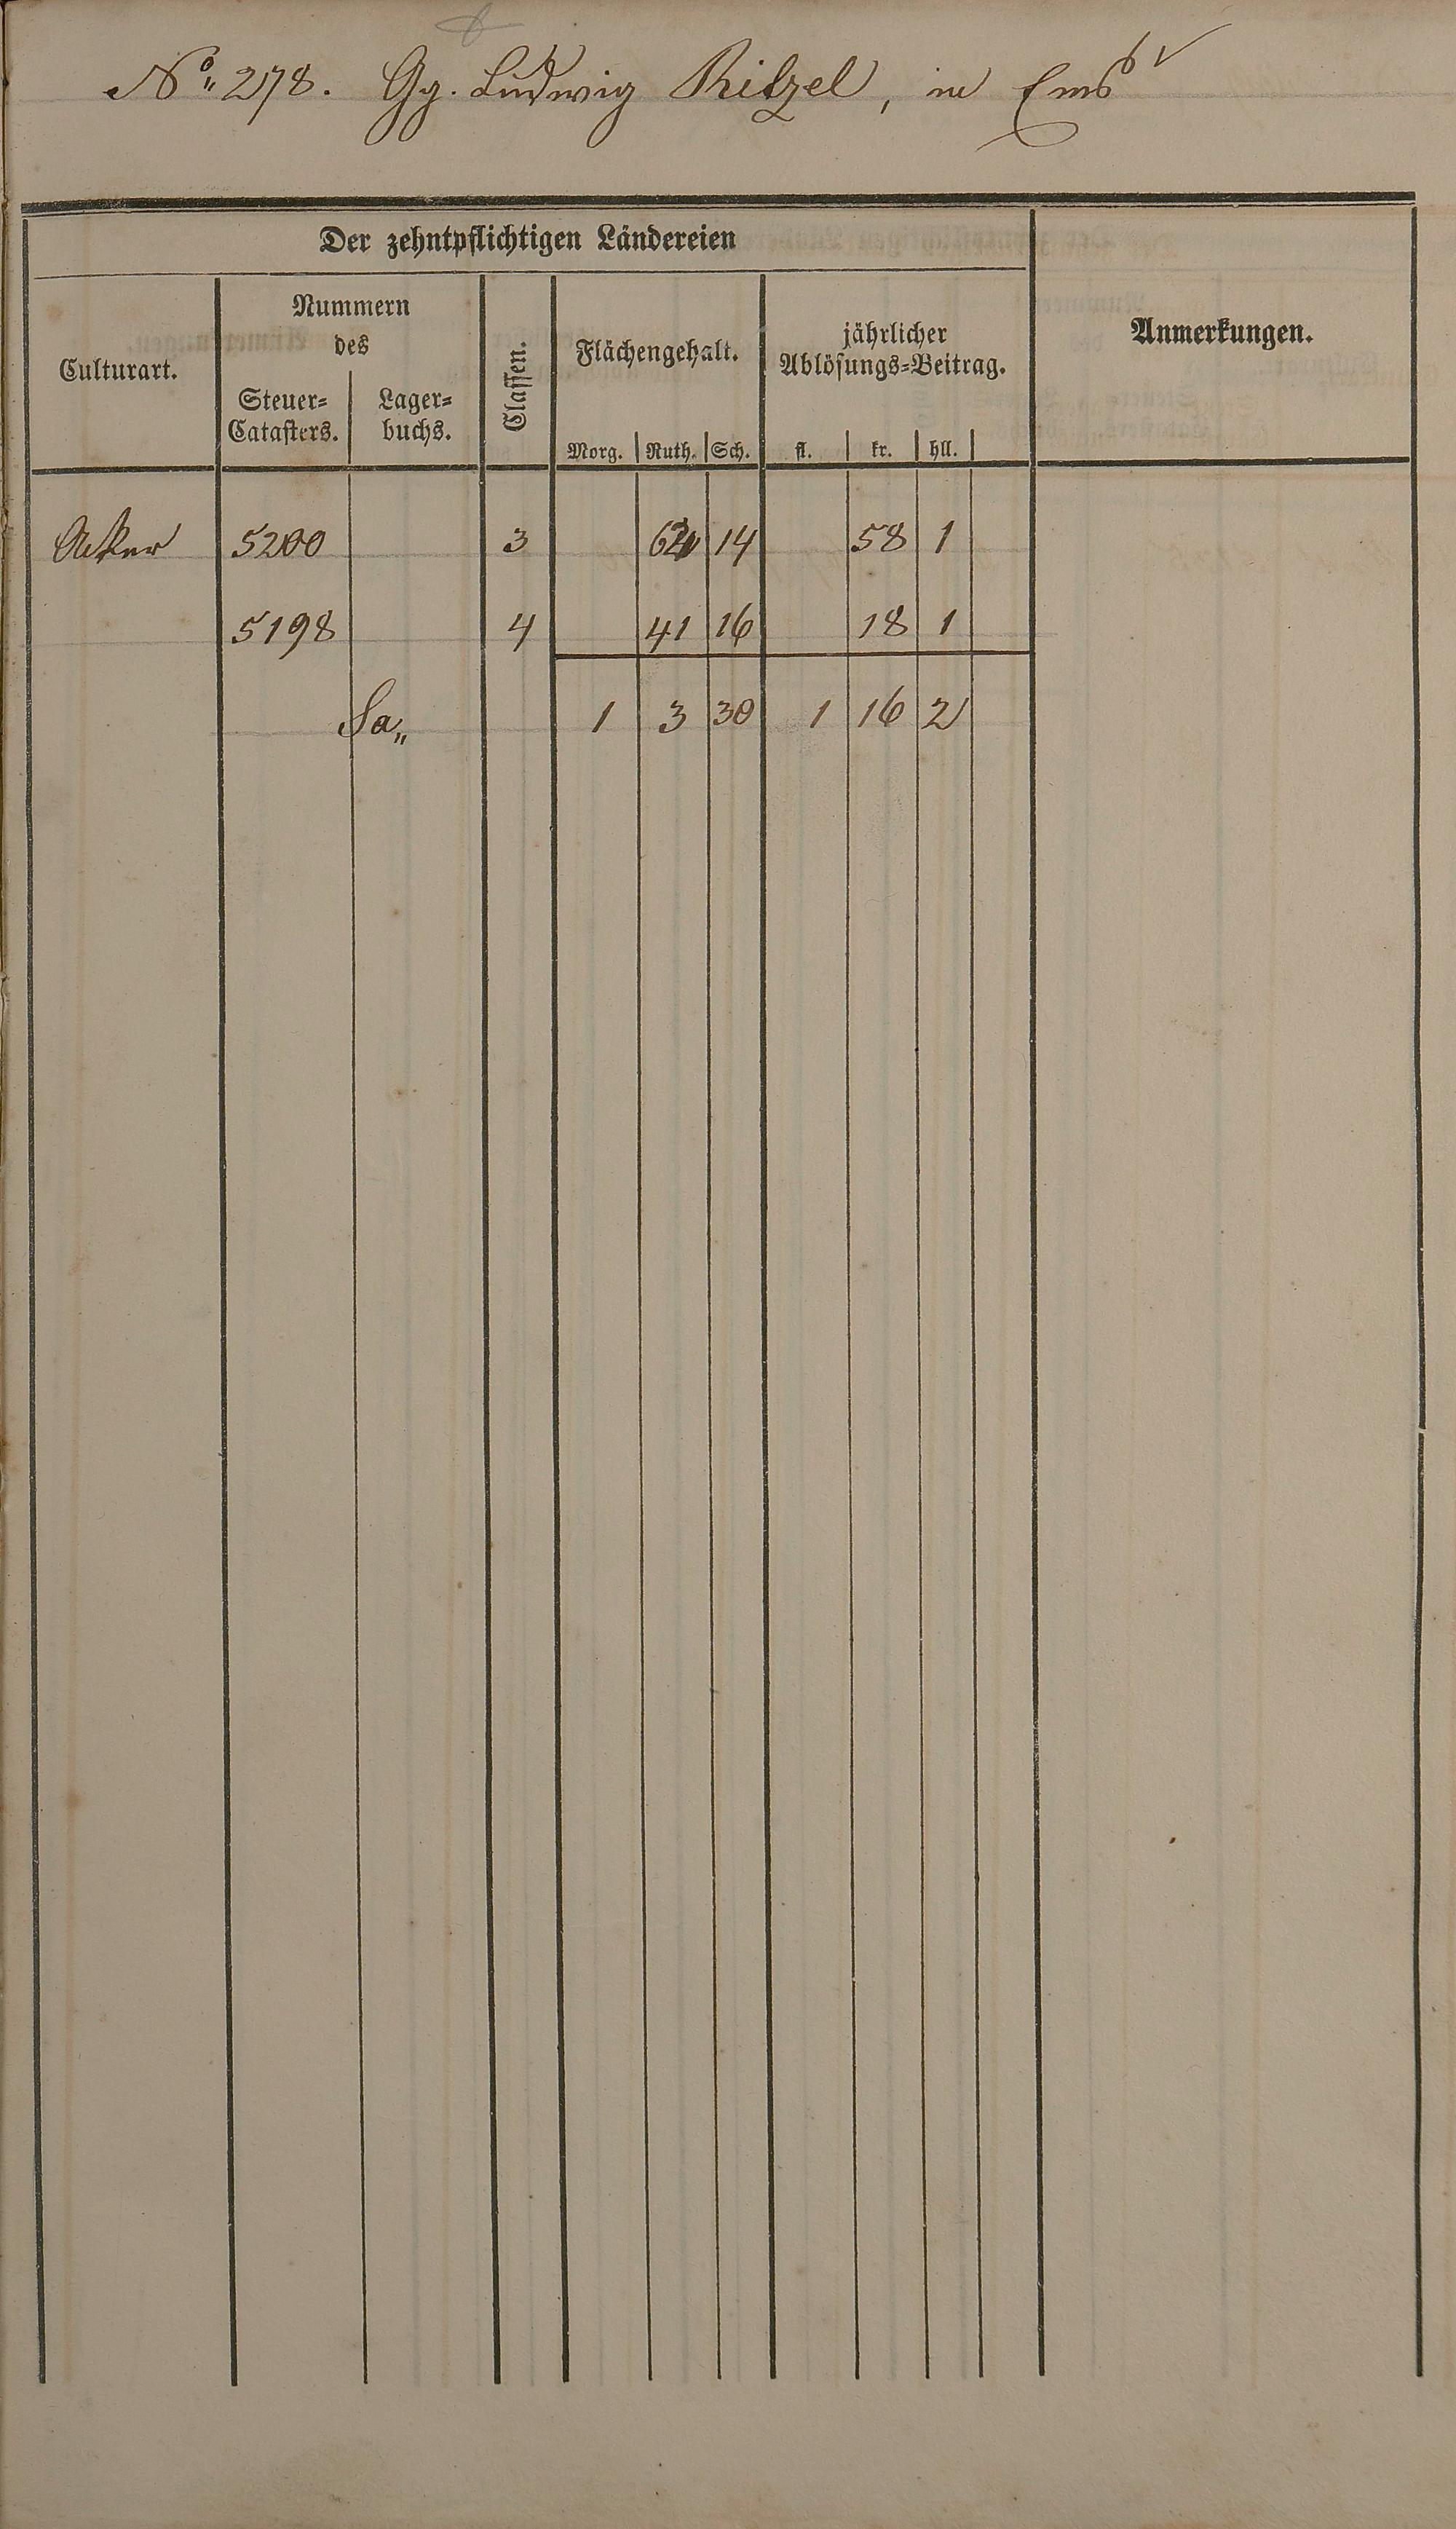 No. 278. Gg. Ludwig Ritzel, in Ems
Der zehntpflichtigen Ländereien
Culturart. Nummern des Steuer-Catasters. Lager-buchs. Classen. Flächengehalt. Morg. Ruth. Sch. jährlicher Ablösungs-Beitrag. fl. kr. hll. Anmerkungen.
Acker 5200 3 62 14 58 1
5198 4 41 16 18 1
Sa„ 1 3 30 1 16 2